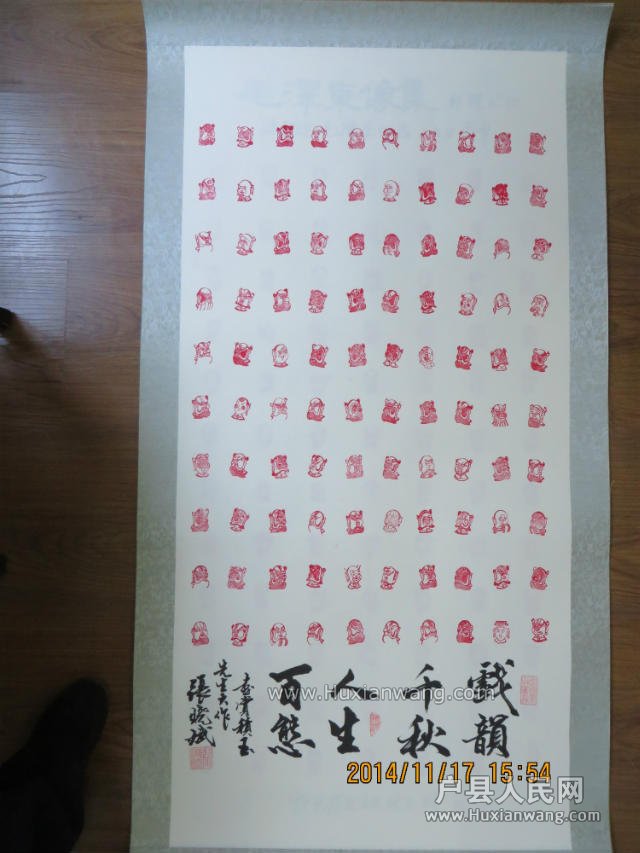 戲韻
千秋
人生
百態
先生大作
張曉斌
www.Huxianwang.com
2014/11/17 15:54
户县人民网
www.Huxianwang.com